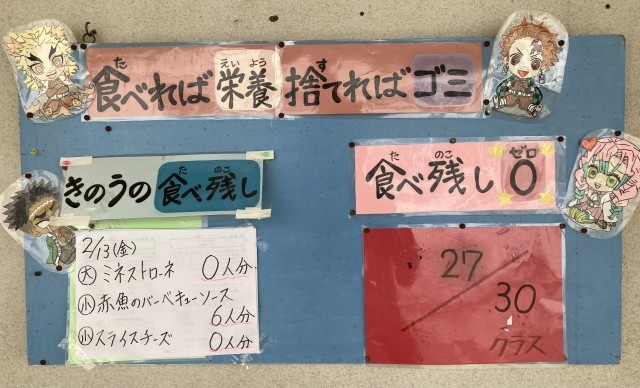 食べれば栄養 捨てればゴミ
きのうの食べ残し
2/13(金)
大 ミネストローネ 0人分
小 赤魚のバーベキューソース
6人分
小 スライスチーズ 0人分
食べ残し0
27/30
クラス